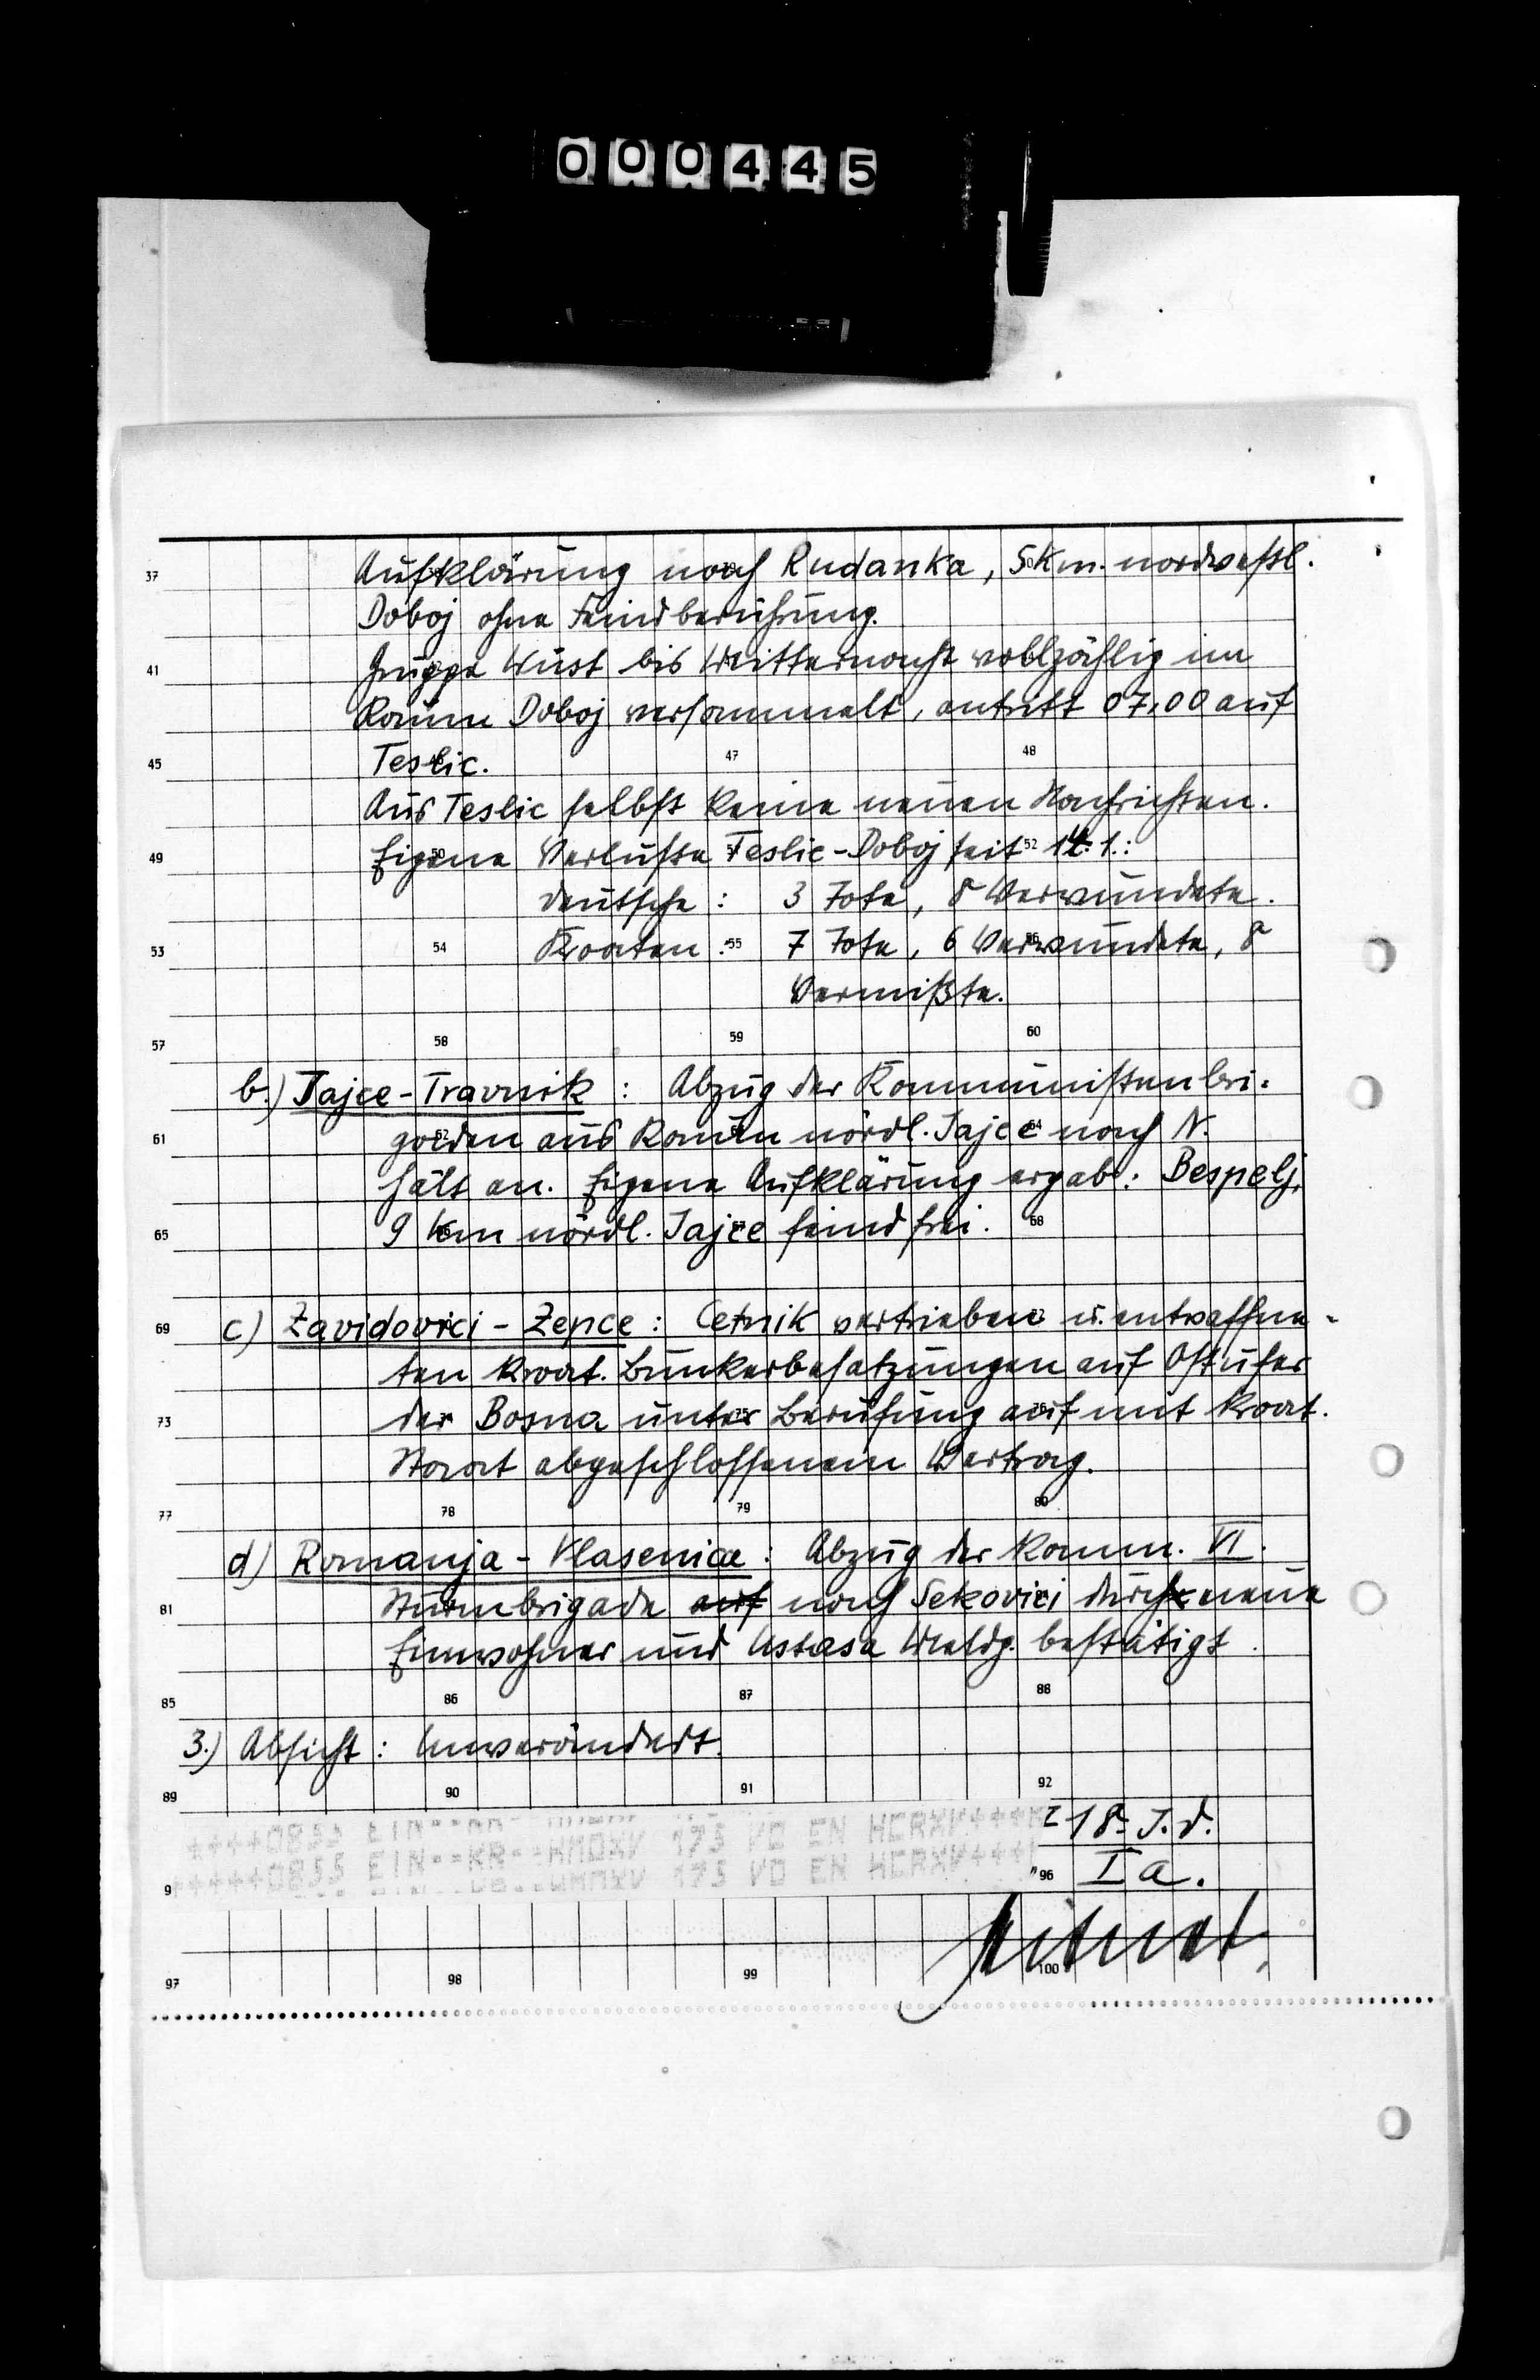 000445
37 Aufklärung nach Rudanka, 5 Km. nordwestl.
Doboj ohne Feindberührung.
41 Gruppe Wüst bis Mitternacht vollzählig im
Raum Doboj versammelt, antritt 07,00 auf
45 Teslic. 47 48
Aus Teslic selbst keine neuen Nachrichten.
49 Eigene Verluste Teslic-Doboj seit 14.1.:
deutsche : 3 Tote, 8 Verwundete.
53 54 Kroaten : 55 7 Tote, 6 Verwundete, 8
Vermißte.
57 58 59 60
b.) Jajce-Travnik : Abzug der Kommunistenbri-
61 gaden aus Raum nördl. Jajce nach N.
hält an. Eigene Aufklärung ergab: Bespelj,
65 9 km nördl. Jajce feindfrei. 68
69 c) Zavidovici - Zepce : Cetnik vertrieben u. entwaffne-
ten kroat. Bunkerbesatzungen auf Ostufer
73 der Bosna unter Berufung auf mit kroat.
Staat abgeschlossenem Vertrag.
77 78 79 80
d) Romanja - Vlasenica : Abzug der komm. VI.
81 Sturmbrigade auf nach Sekovici durch neue
Einwohner und Ustasa Meldg. bestätigt.
85 86 87 88
3.) Absicht : Unverändert.
89 90 91 92
++++0855 EIN
+++++0855 EIN--KR--HMDXV 173 VD EN HCRXV++++
I 18. J.d.
96 Ia.
97 98 99 100